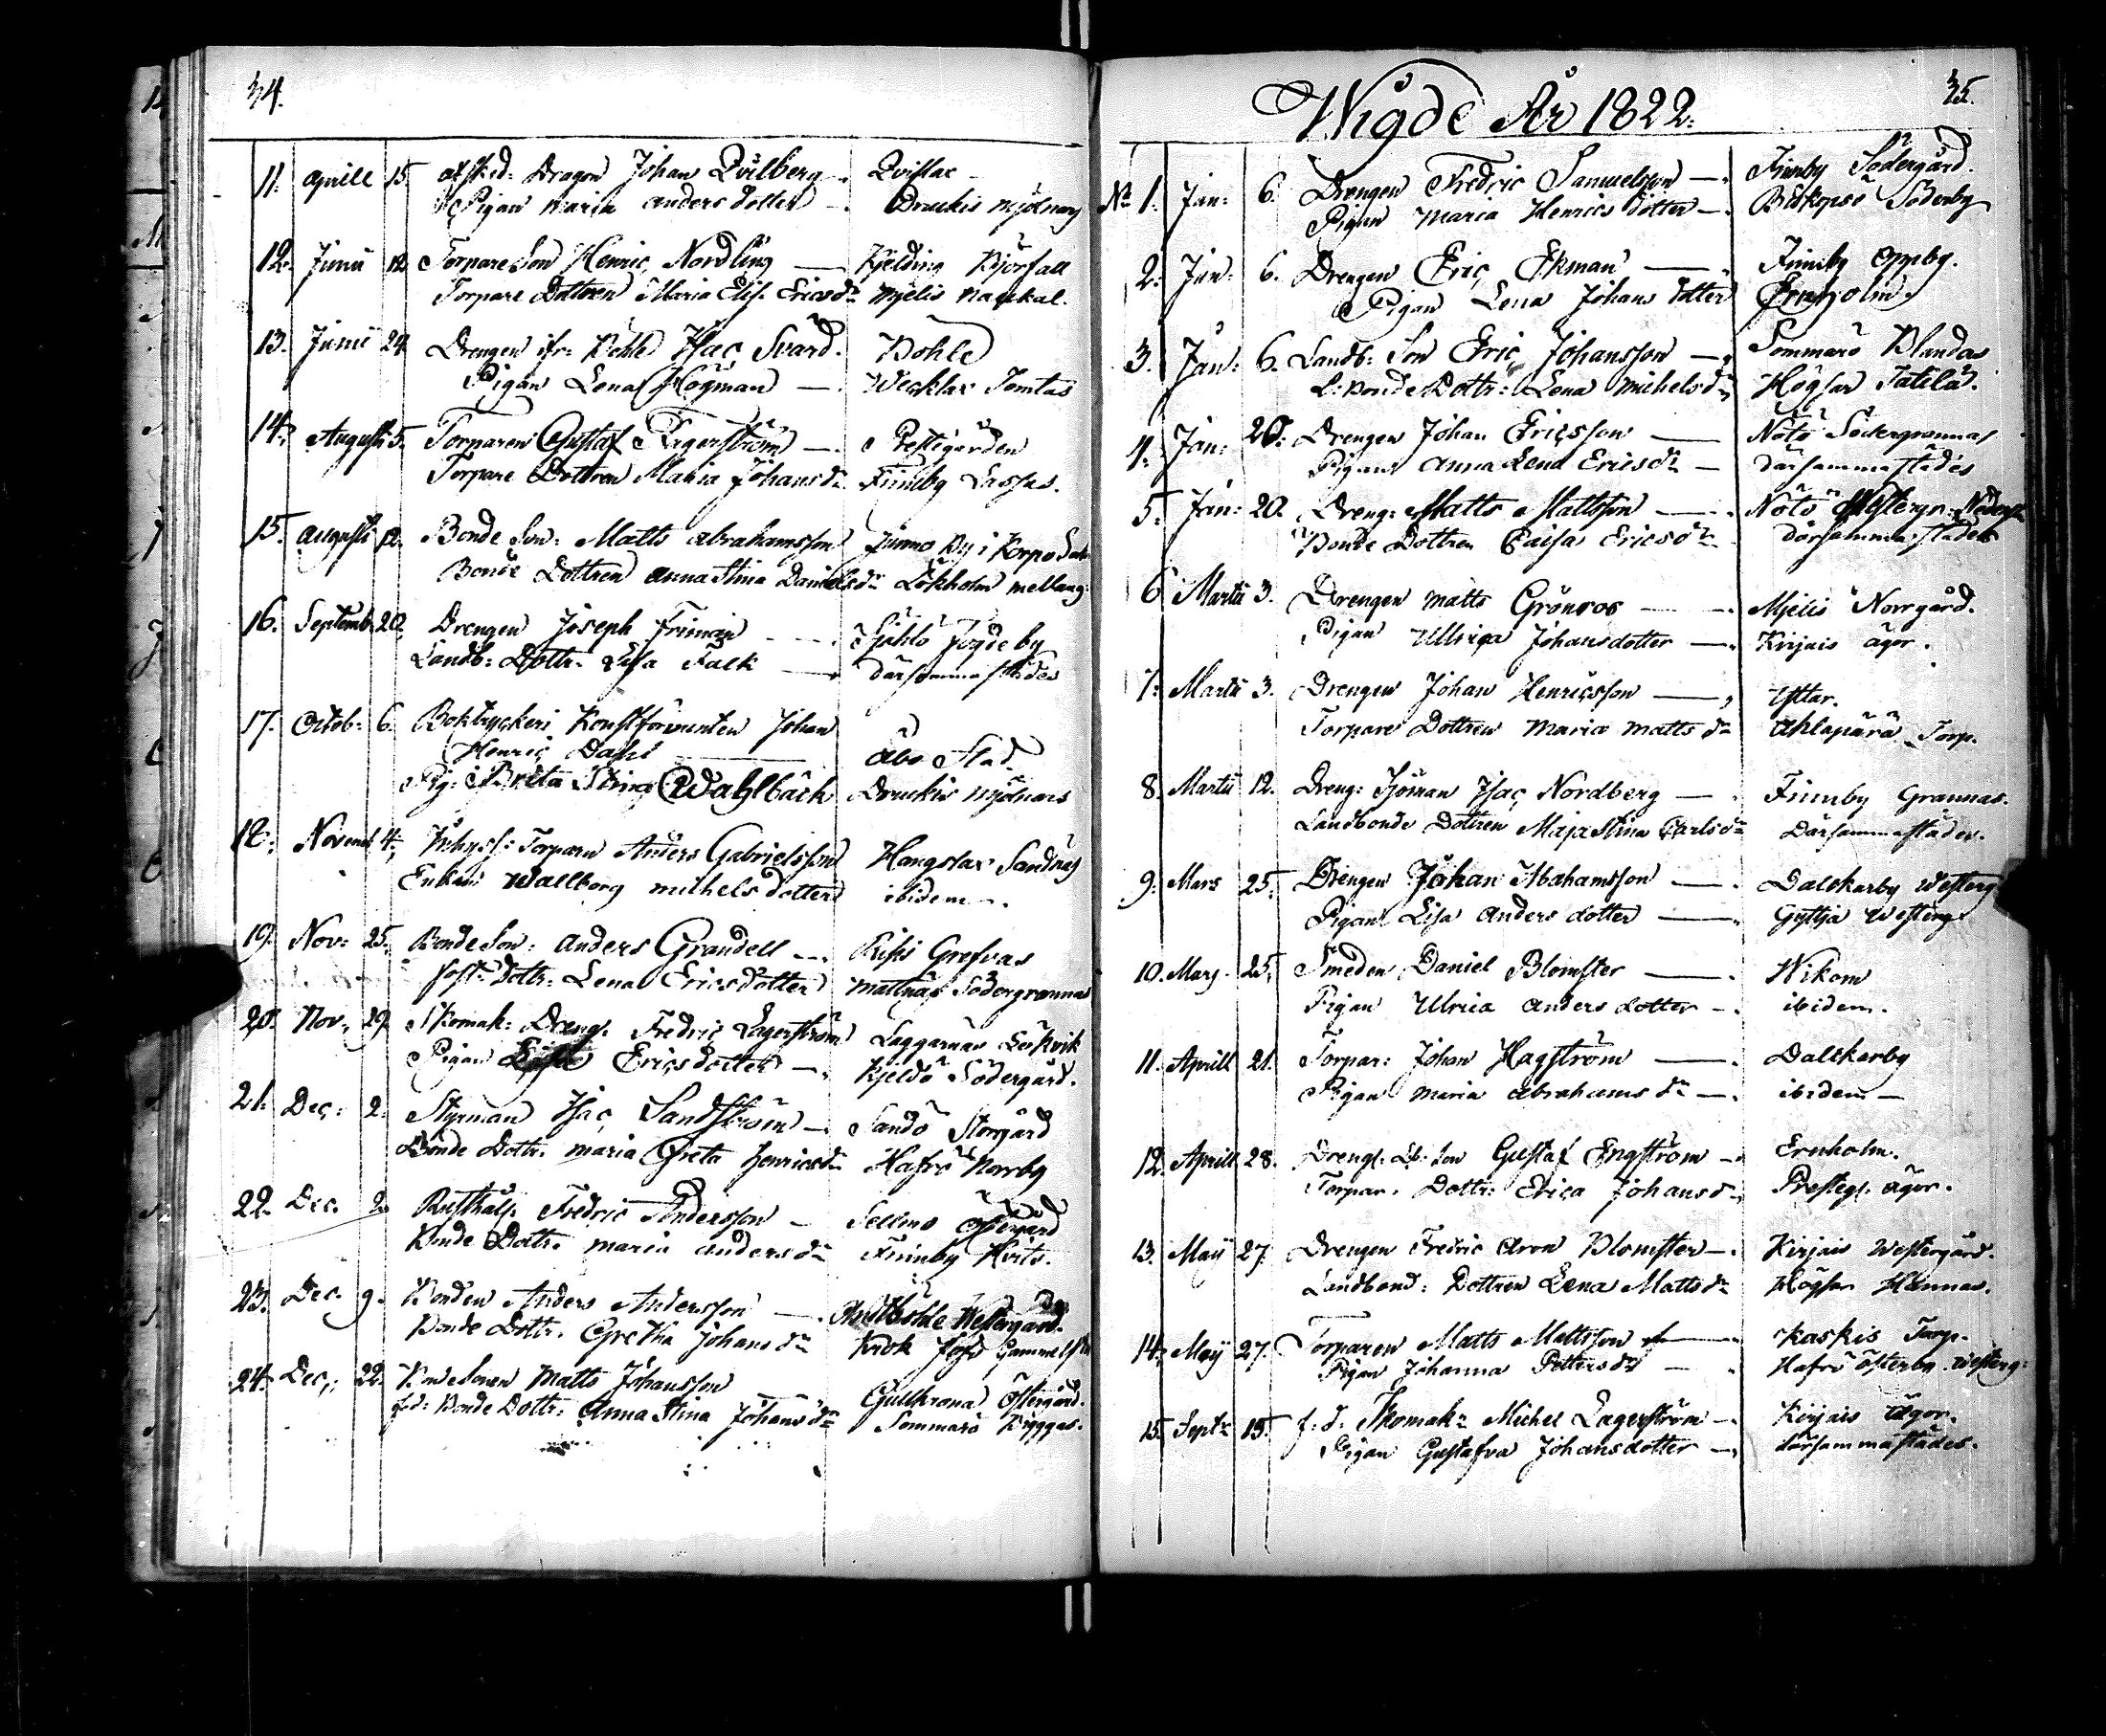 34.
11. Aprill 15. afsked: Dragon Johan Qvilberg — Qvistar
Pigan Maria Anders dotter — Druckis Mjölnarg
12. Junii 12. Torpare Son Henric Nordling — Kjelding Björfall
Torpare Dottren Maria Elis. Ericsdr Mjelis Nackal.
13. Junii 24 Drengen ifr: Böhle Isac Svärd. Böhle
Pigan Lena Högman — Wecklax Tomtas
14. Augusti 5. Torparen Gustaf Fagerström — Prestgården
Torpare Dottren Maria Johansdr Finnby Lassas.
15. Augusti 12. Bonde Son: Matts Abrahamsson Jurmo By i Korpo
Bonde Dottren Anna Stina Danielsdr Lökholm Mellang:
16. Septemb. 20. Drengen Joseph Friman — Sjählö Fogdeby
Landb: Dottr: Lisa Falk — därsammastädes
17. Octob: 6. Boktryckeri Konstförvanten Johan
Henric Dahl — Åbo Stad.
Pig: Brita Stina Wahlbäck Druckis Mjölnars
18. Novemb. 4. Inhyss: Torparen Anders Gabrielsson Hangslax Sandnäs
Enkan Wallborg Michels dotter ibidem —.
19. Nov: 25. Bonde Son: Anders Grandell — Risis Grefvas
fost: Dottr: Lena Ericsdotter Mattnäs Södergrannas
20. Nov. 29. Skomak: Dreng: Fredric Lagerström Laggarnäs
Pigan Ericsdotter — Kjeldö Södergård.
21. Dec: 2. Styrman Isac Sandström — Sandö Storgård
Bonde Dottr: Maria Greta Henricsdr Hafrö Norrby
22. Dec. 2. Rusthåls: Fredric Andersson — Sellmo Östergård
Bonde Dottr: Maria Andersdr Finnby Hvits.
23. Dec. 9. Bonden Anders Andersson — Westergård.
Bonde Dottr. Gretha Johansdr Krok
24. Dec. 22. Bonde Sonen Matts Johansson Gullkrona Östergård.
f.d: Bonde Dottr: Anna Stina Johansdr Sommarö Bygges.
Wigde År 1822.
35.
No 1. Jan: 6. Drengen Fredric Samuelsson — Finnby Södergård.
Pigan Maria Henrics dotter — Biskopsö Söderby
2. Jan: 6. Drengen Eric Ekman — Finnby Oppby.
Pigan Lena Johans dotter Ernholm.
3. Jan: 6. Landb: Son Eric Johansson — Sommarö Blandas
L: Bonde Dottr: Lena Michelsdr Högsar Tatila.
4. Jan: 20. Drengen Johan Ericsson — Nötö Södergrannas
Pigan Anna Lena Ericsdr — därsammastädes
5. Jan: 20. Dreng: Matts Mattsson — Nötö
Bonde Dottren Caisa Ericsdr därsammastädes
6 Martii 3. Drengen Matts Grönroos — Mjelis Norrgård.
Pigan Ullrica Johansdotter — Kirjais ägor.
7. Martii 3. Drengen Johan Henricsson — Yttar.
Torpare Dottren Maria Mattsdr Ahlapärä Torp.
8. Martii 12. Dreng: Sjöman Isac Nordberg — Finnby Grannas.
Landbonde Dottren Maja Stina Carlsdr Därsammastädes.
9. Mars 25. Drengen Johan Abrahamsson — Dalskarby Westerg
Pigan Lisa Anders dotter — Gyttja Westerg
10. Mars 25. Smeden Daniel Blomster — Wikom
Pigan Ulrica Anders dotter — ibidem.
11. Aprill 21. Torpar: Johan Hagström — Dalskarby
Pigan Maria Abrahams dr — ibidem —
12. Aprill 28. Dreng: Lb: Son Gustaf Engström — Ernholm.
Torpar. Dottr: Erica Johansd — Presteg. ägor.
13. Maij 27. Drengen Fredric Aron Blomster — Kirjais Westergård.
Landbond: Dottren Lena Mattsdr Högsar Hannas.
14. Maij 27. Torparen Matts Mattsson — Kaskis Torp.
Pigan Johanna Pettersdr — Hafrö Österby Westerg:
15. Septr 15. f: d: Skomak: Michel Lagerström — Kirjais ägor.
Pigan Gustafva Johansdotter — därsammastädes.